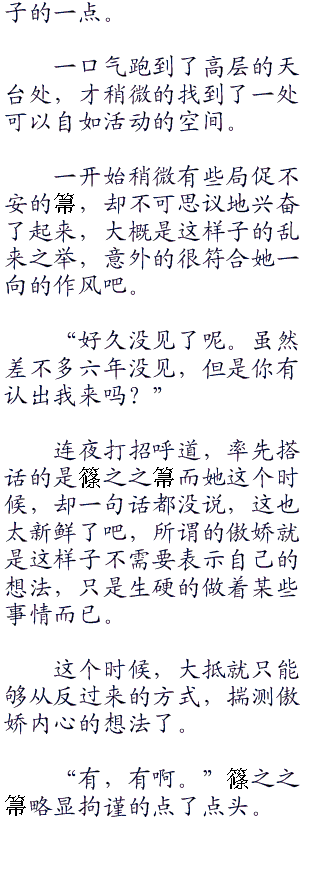 子的一点。
一口气跑到了高层的天
台处，才稍微的找到了一处
可以自如活动的空间。
一开始稍微有些局促不
安的箒，却不可思议地兴奋
了起来，大概是这样子的乱
来之举，意外的很符合她一
向的作风吧。
“好久没见了呢。虽然
差不多六年没见，但是你有
认出我来吗？”
连夜打招呼道，率先搭
话的是篠之之箒而她这个时
候，却一句话都没说，这也
太新鲜了吧，所谓的傲娇就
是这样子不需要表示自己的
想法，只是生硬的做着某些
事情而已。
这个时候，大抵就只能
够从反过来的方式，揣测傲
娇内心的想法了。
“有，有啊。”篠之之
箒略显拘谨的点了点头。